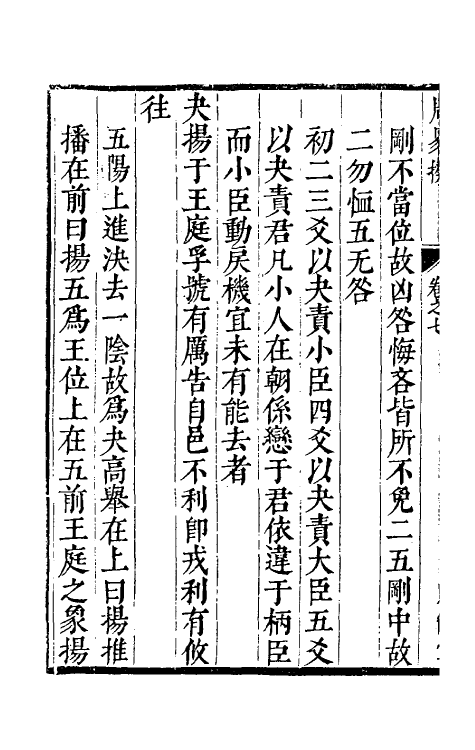 卷之七
剛不當位故凶咎悔吝皆所不免二五剛中故
二勿恤五无咎
初二三爻以夬責小臣四爻以夬責大臣五爻
以夬責君凡小人在朝係戀于君依違于柄臣
而小臣動戾機宜未有能去者
夬揚于王庭孚號有厲告自邑不利即戎利有攸
往
五陽上進決去一陰故爲夬高舉在上曰揚推
播在前曰揚五爲王位上在五前王庭之象揚